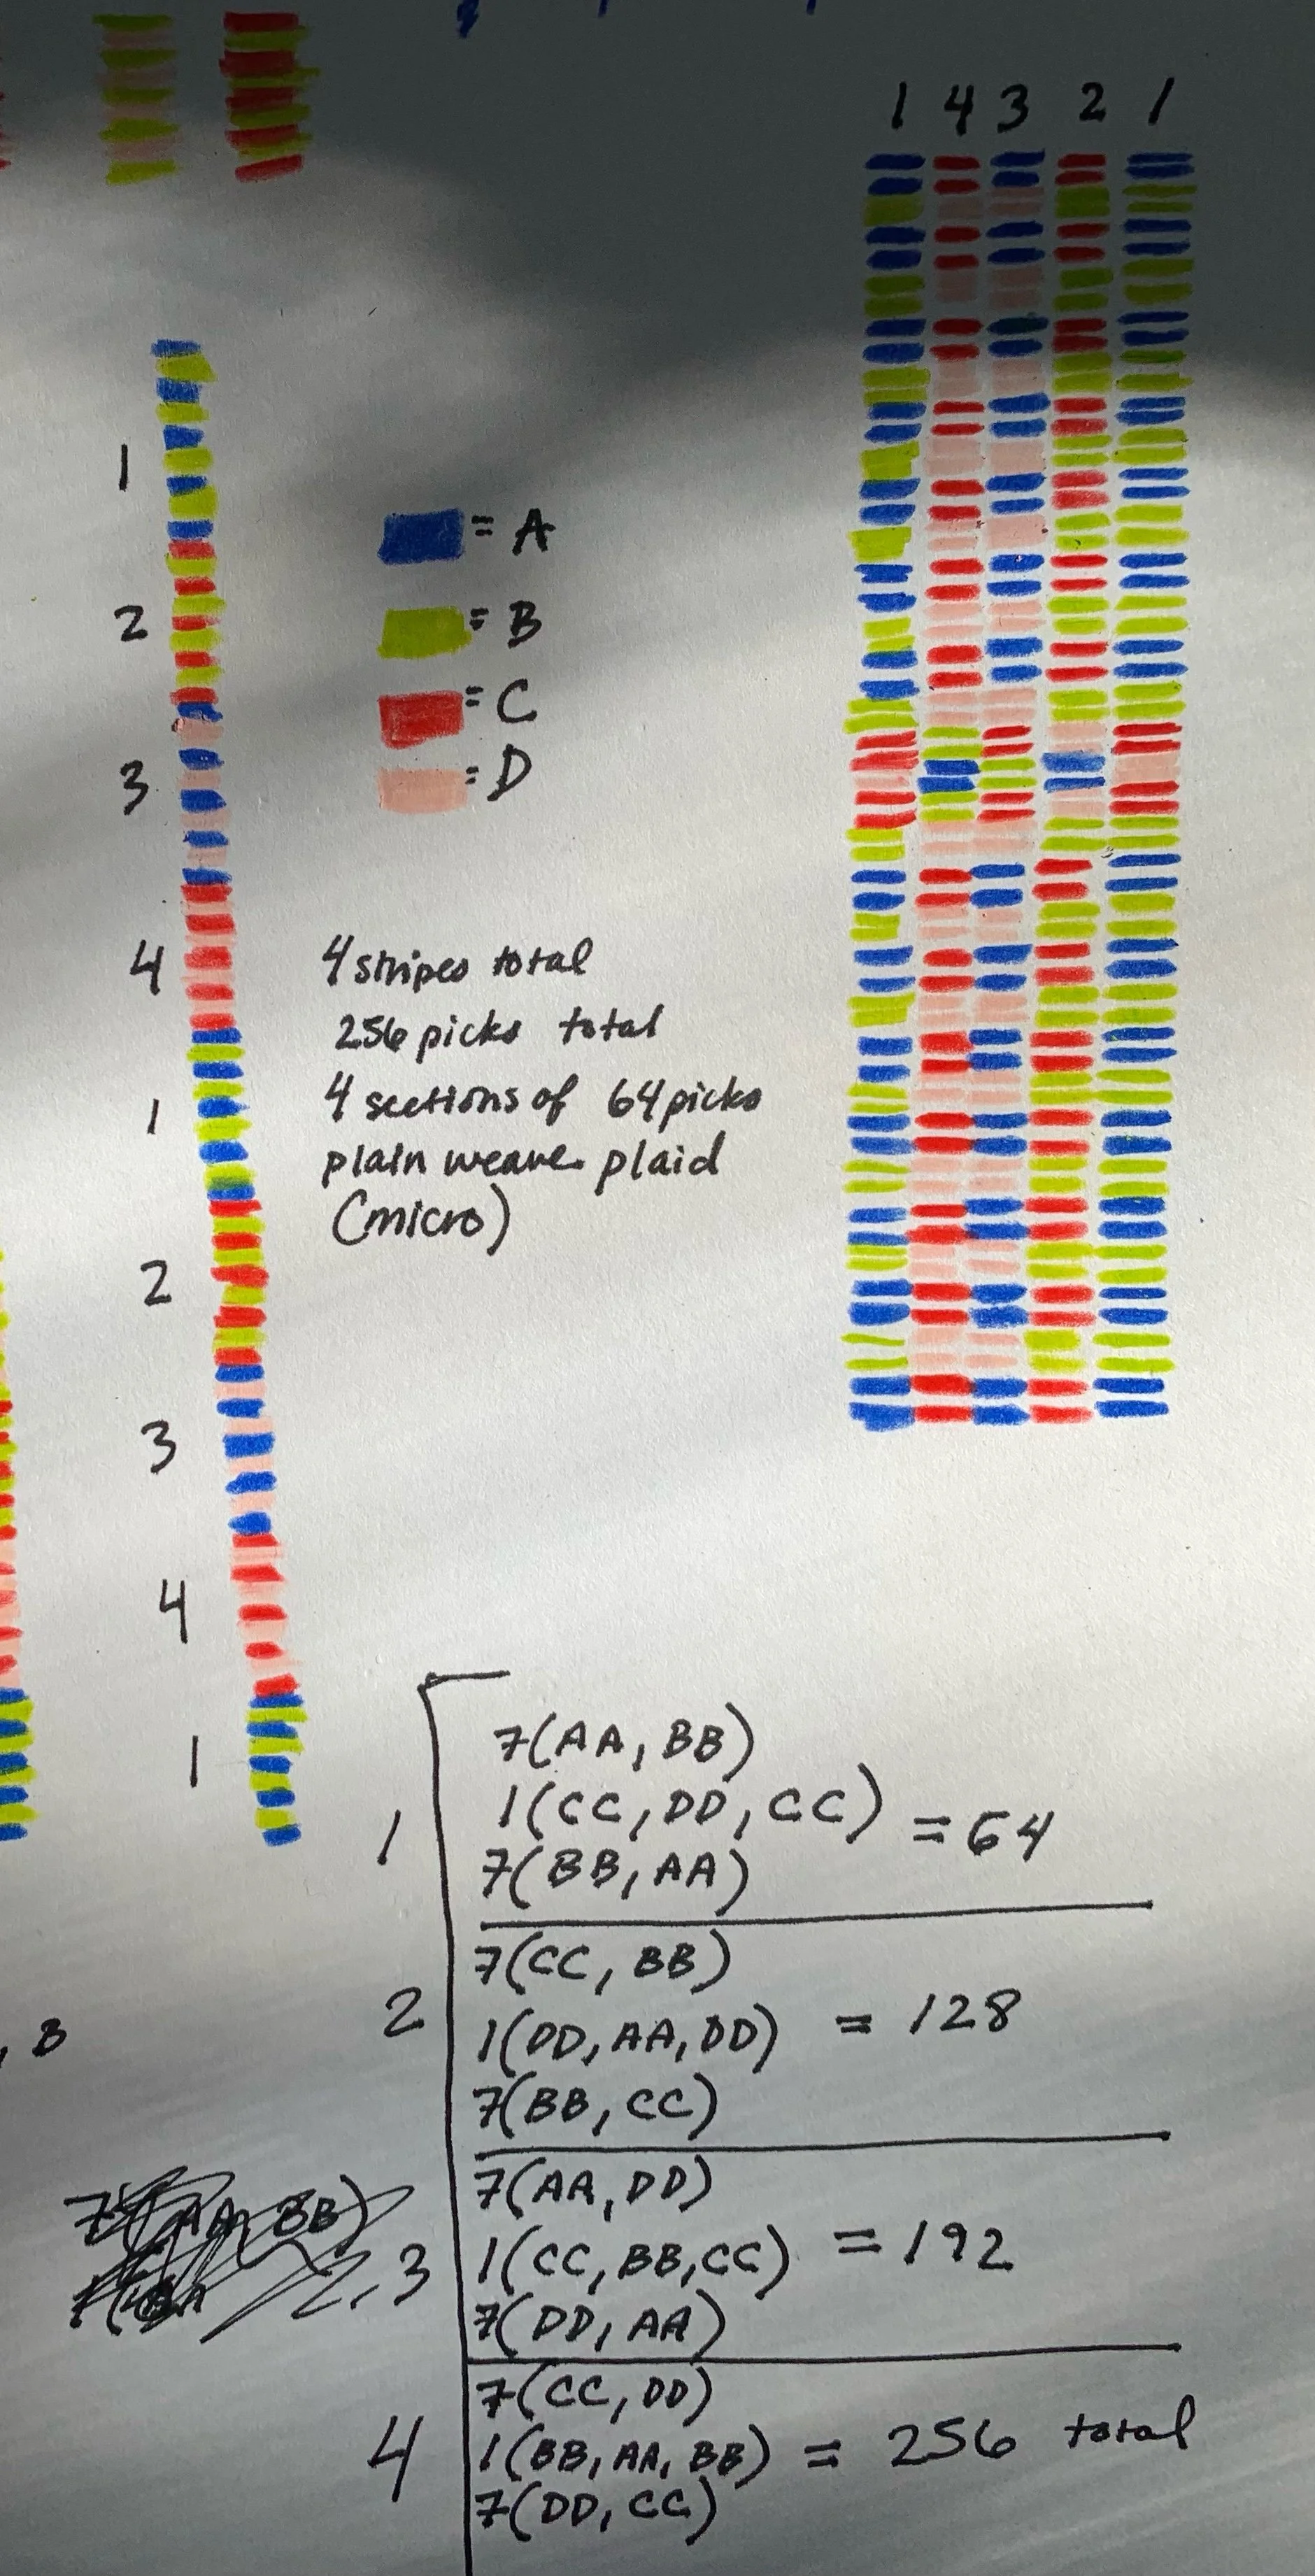 1 4 3 2 1
1
= A
2
= B
= C
3
= D
4
4 stripes total
256 picks total
4 sections of 64 picks
plain weave plaid
(micro)
1
2
3
4
1
7(AA, BB)
1 1(CC, DD, CC) = 64
7(BB, AA)
7(CC, BB)
2 1(DD, AA, DD) = 128
7(BB, CC)
, B
7(AA, DD)
3 1(CC, BB, CC) = 192
7(DD, AA)
7(AA, BB)
7(CC, DD)
4 1(BB, AA, BB) = 256 total
7(DD, CC)